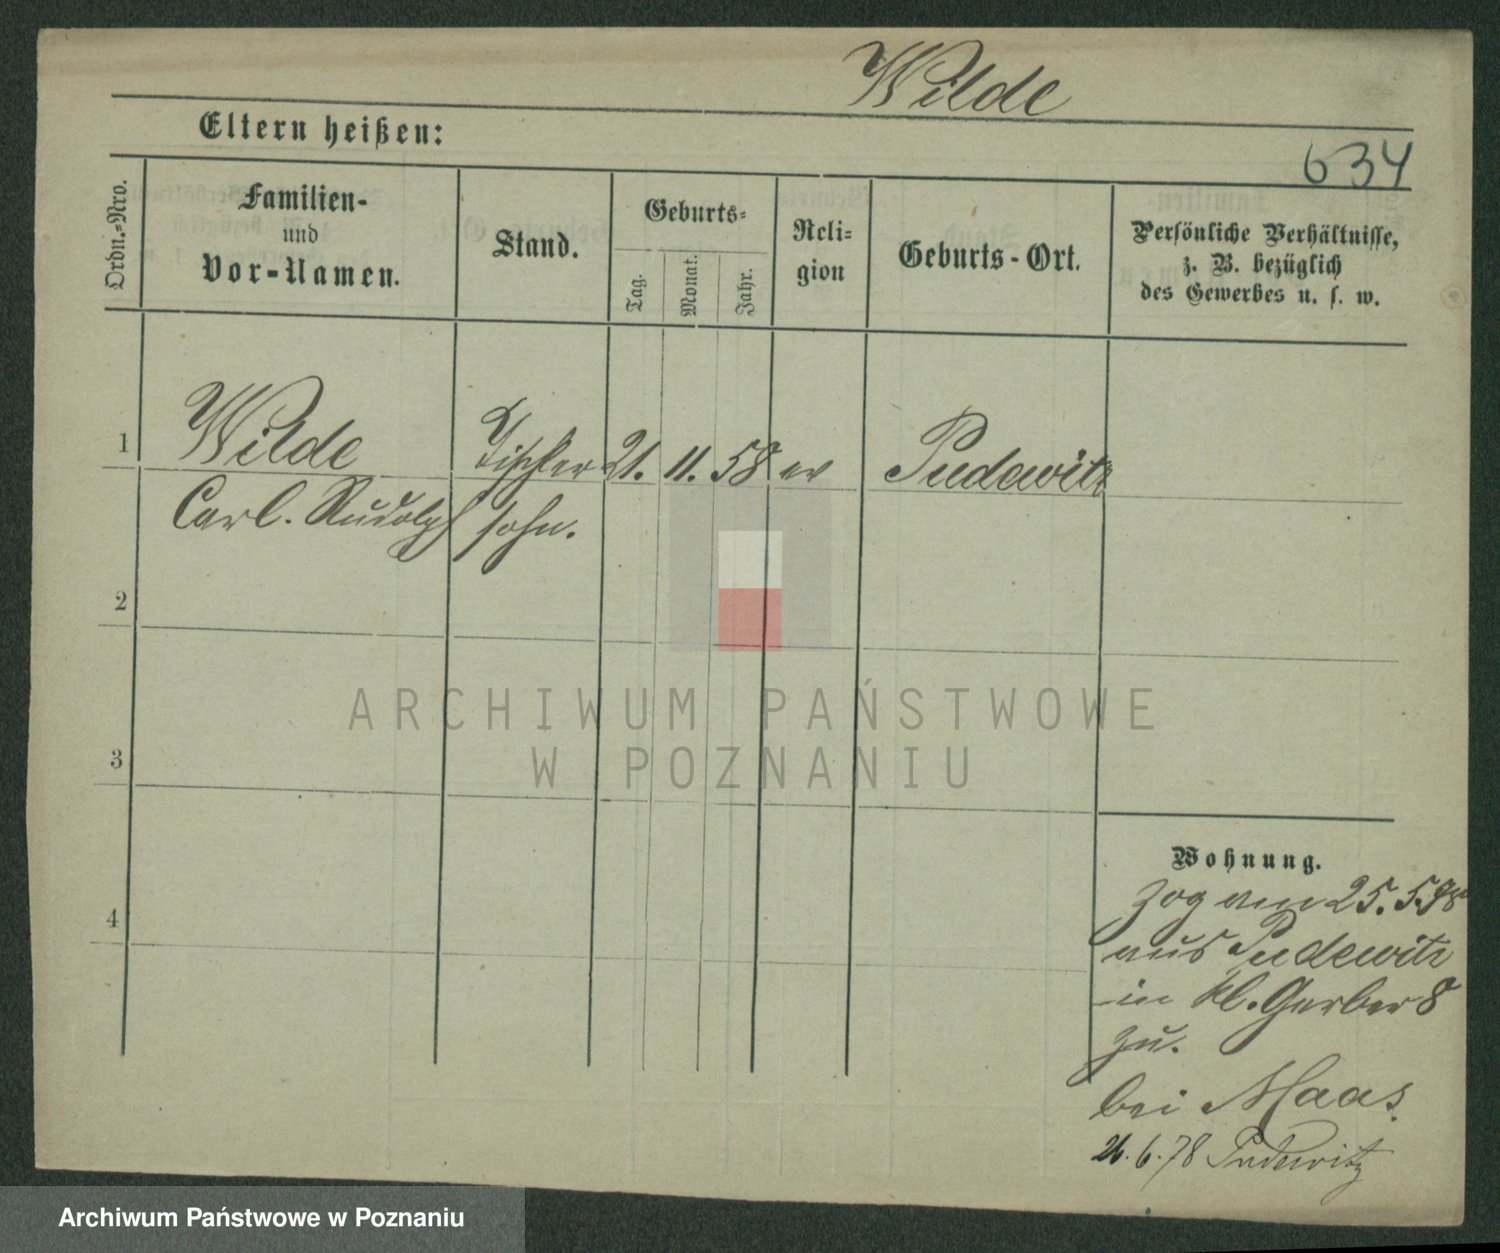 Wilde
Eltern heißen:
634
Ordn.=Nro.
Familien-
und
Vor-Namen.
Stand.
Geburts=
Tag.
Monat.
Jahr.
Reli=
gion
Geburts-Ort.
Persönliche Verhältnisse,
z. B. bezüglich
des Gewerbes u. s. w.
1
Wilde
Tischler
21.
11.
58
ev
Pudewitz
Carl. Rudolph
sohn.
2
3
4
Wohnung.
Zog am 25.5.78
aus Pudewitz
in Kl. Gerber 8
zu.
bei Maas.
6.78 Pudewitz
ARCHIWUM PAŃSTWOWE
W POZNANIU
Archiwum Państwowe w Poznaniu